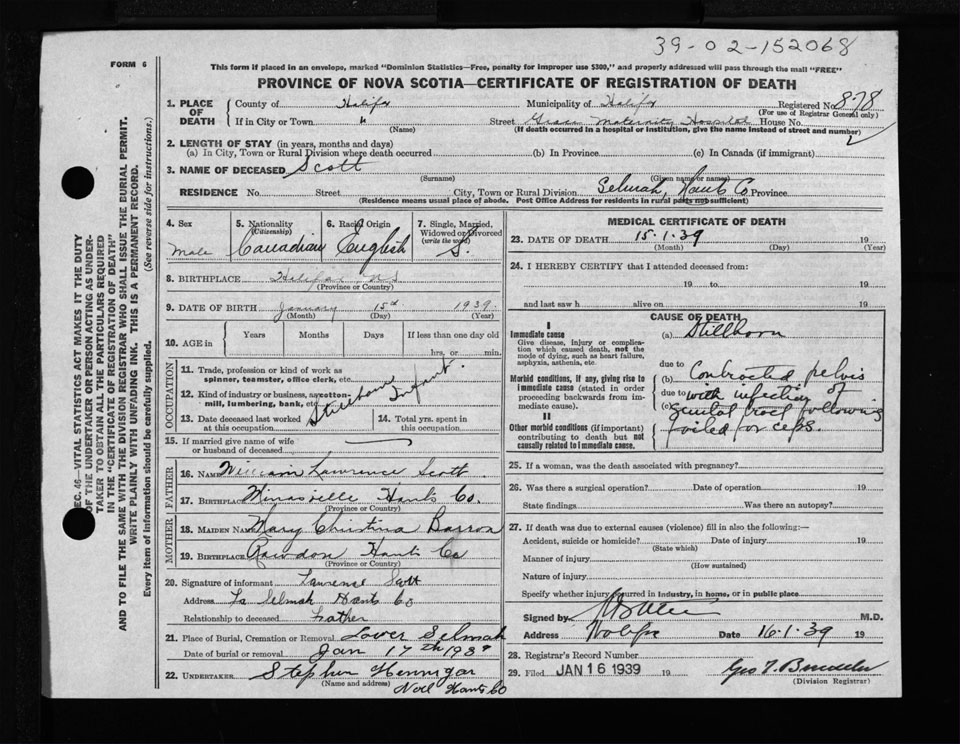 39-02-152068
FORM 6
This form if placed in an envelope, marked "Dominion Statistics—Free, penalty for improper use $300," and properly addressed will pass through the mail "FREE"
PROVINCE OF NOVA SCOTIA—CERTIFICATE OF REGISTRATION OF DEATH
SEC. 46—VITAL STATISTICS ACT MAKES IT THE DUTY
OF THE UNDERTAKER OR PERSON ACTING AS UNDER-
TAKER TO OBTAIN ALL THE PARTICULARS REQUIRED
IN THE "CERTIFICATE OF REGISTRATION OF DEATH"
AND TO FILE THE SAME WITH THE DIVISION REGISTRAR WHO SHALL ISSUE THE BURIAL PERMIT.
WRITE PLAINLY WITH UNFADING INK. THIS IS A PERMANENT RECORD.
Every item of information should be carefully supplied. (See reverse side for instructions.)
1. PLACE OF DEATH County of Halifax Municipality of Halifax Registered No. 878
(For use of Registrar General only)
If in City or Town " Street Grace Maternity Hospital House No.
(Name) (If death occurred in a hospital or institution, give the name instead of street and number)
2. LENGTH OF STAY (in years, months and days)
(a) In City, Town or Rural Division where death occurred (b) In Province (c) In Canada (if immigrant)
3. NAME OF DECEASED Scott
(Surname) (Given name or names)
RESIDENCE No. Street City, Town or Rural Division Selmah, Hants Co Province
(Residence means usual place of abode. Post Office Address for residents in rural parts not sufficient)
4. Sex Male
5. Nationality (Citizenship) Canadian
6. Racial Origin English
7. Single, Married, Widowed or Divorced (write the word) S.
8. BIRTHPLACE Halifax N S
(Province or Country)
9. DATE OF BIRTH January 15th 1939
(Month) (Day) (Year)
10. AGE in Years Months Days If less than one day old
hrs. or min.
OCCUPATION
11. Trade, profession or kind of work as
spinner, teamster, office clerk, etc.
12. Kind of industry or business, as cotton-
mill, lumbering, bank, etc.
Stillborn Infant.
13. Date deceased last worked at this occupation
14. Total yrs. spent in this occupation
15. If married give name of wife
or husband of deceased
FATHER
16. NAME William Lawrence Scott
17. BIRTHPLACE Minasville Hants Co.
(Province or Country)
MOTHER
18. MAIDEN NAME Mary Christina Barron
19. BIRTHPLACE Rawdon Hants Co
(Province or Country)
20. Signature of informant Lawrence Scott
Address Lr Selmah Hants Co
Relationship to deceased Father
21. Place of Burial, Cremation or Removal Lower Selmah
Date of burial or removal Jan 17th 1939
22. UNDERTAKER Stephen Hennigar
(Name and address) Noel Hants Co
MEDICAL CERTIFICATE OF DEATH
23. DATE OF DEATH 15.1.39 19
(Month) (Day) (Year)
24. I HEREBY CERTIFY that I attended deceased from:
19 to 19
and last saw h alive on 19
CAUSE OF DEATH
I
Immediate cause
Give disease, injury or complica-
tion which caused death, not the
mode of dying, such as heart failure,
asphyxia, asthenia, etc.
(a) Stillborn
due to
Morbid conditions, if any, giving rise to
immediate cause (stated in order
proceeding backwards from im-
mediate cause).
(b) Contracted pelvis
due to with infection of
(c) genital tract following
failed forceps.
II
Other morbid conditions (if important)
contributing to death but not
causally related to immediate cause.
25. If a woman, was the death associated with pregnancy?
26. Was there a surgical operation? Date of operation 19
State findings Was there an autopsy?
27. If death was due to external causes (violence) fill in also the following:—
Accident, suicide or homicide? Date of injury 19
(State which)
Manner of injury
(How sustained)
Nature of injury
Specify whether injury occurred in industry, in home, or in public place
Signed by M.D.
Address Halifax Date 16.1.39 19
28. Registrar's Record Number
29. Filed JAN 16 1939 19
(Division Registrar)